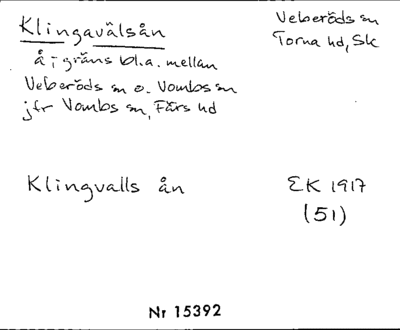 Klingavälsån
Veberöds sn
Torna hd, Sk
å i gräns bl.a. mellan
Veberöds sn o. Vombs sn
jfr Vombs sn, Färs hd
Klingvalls ån
EK 1917
(51)
Nr 15392